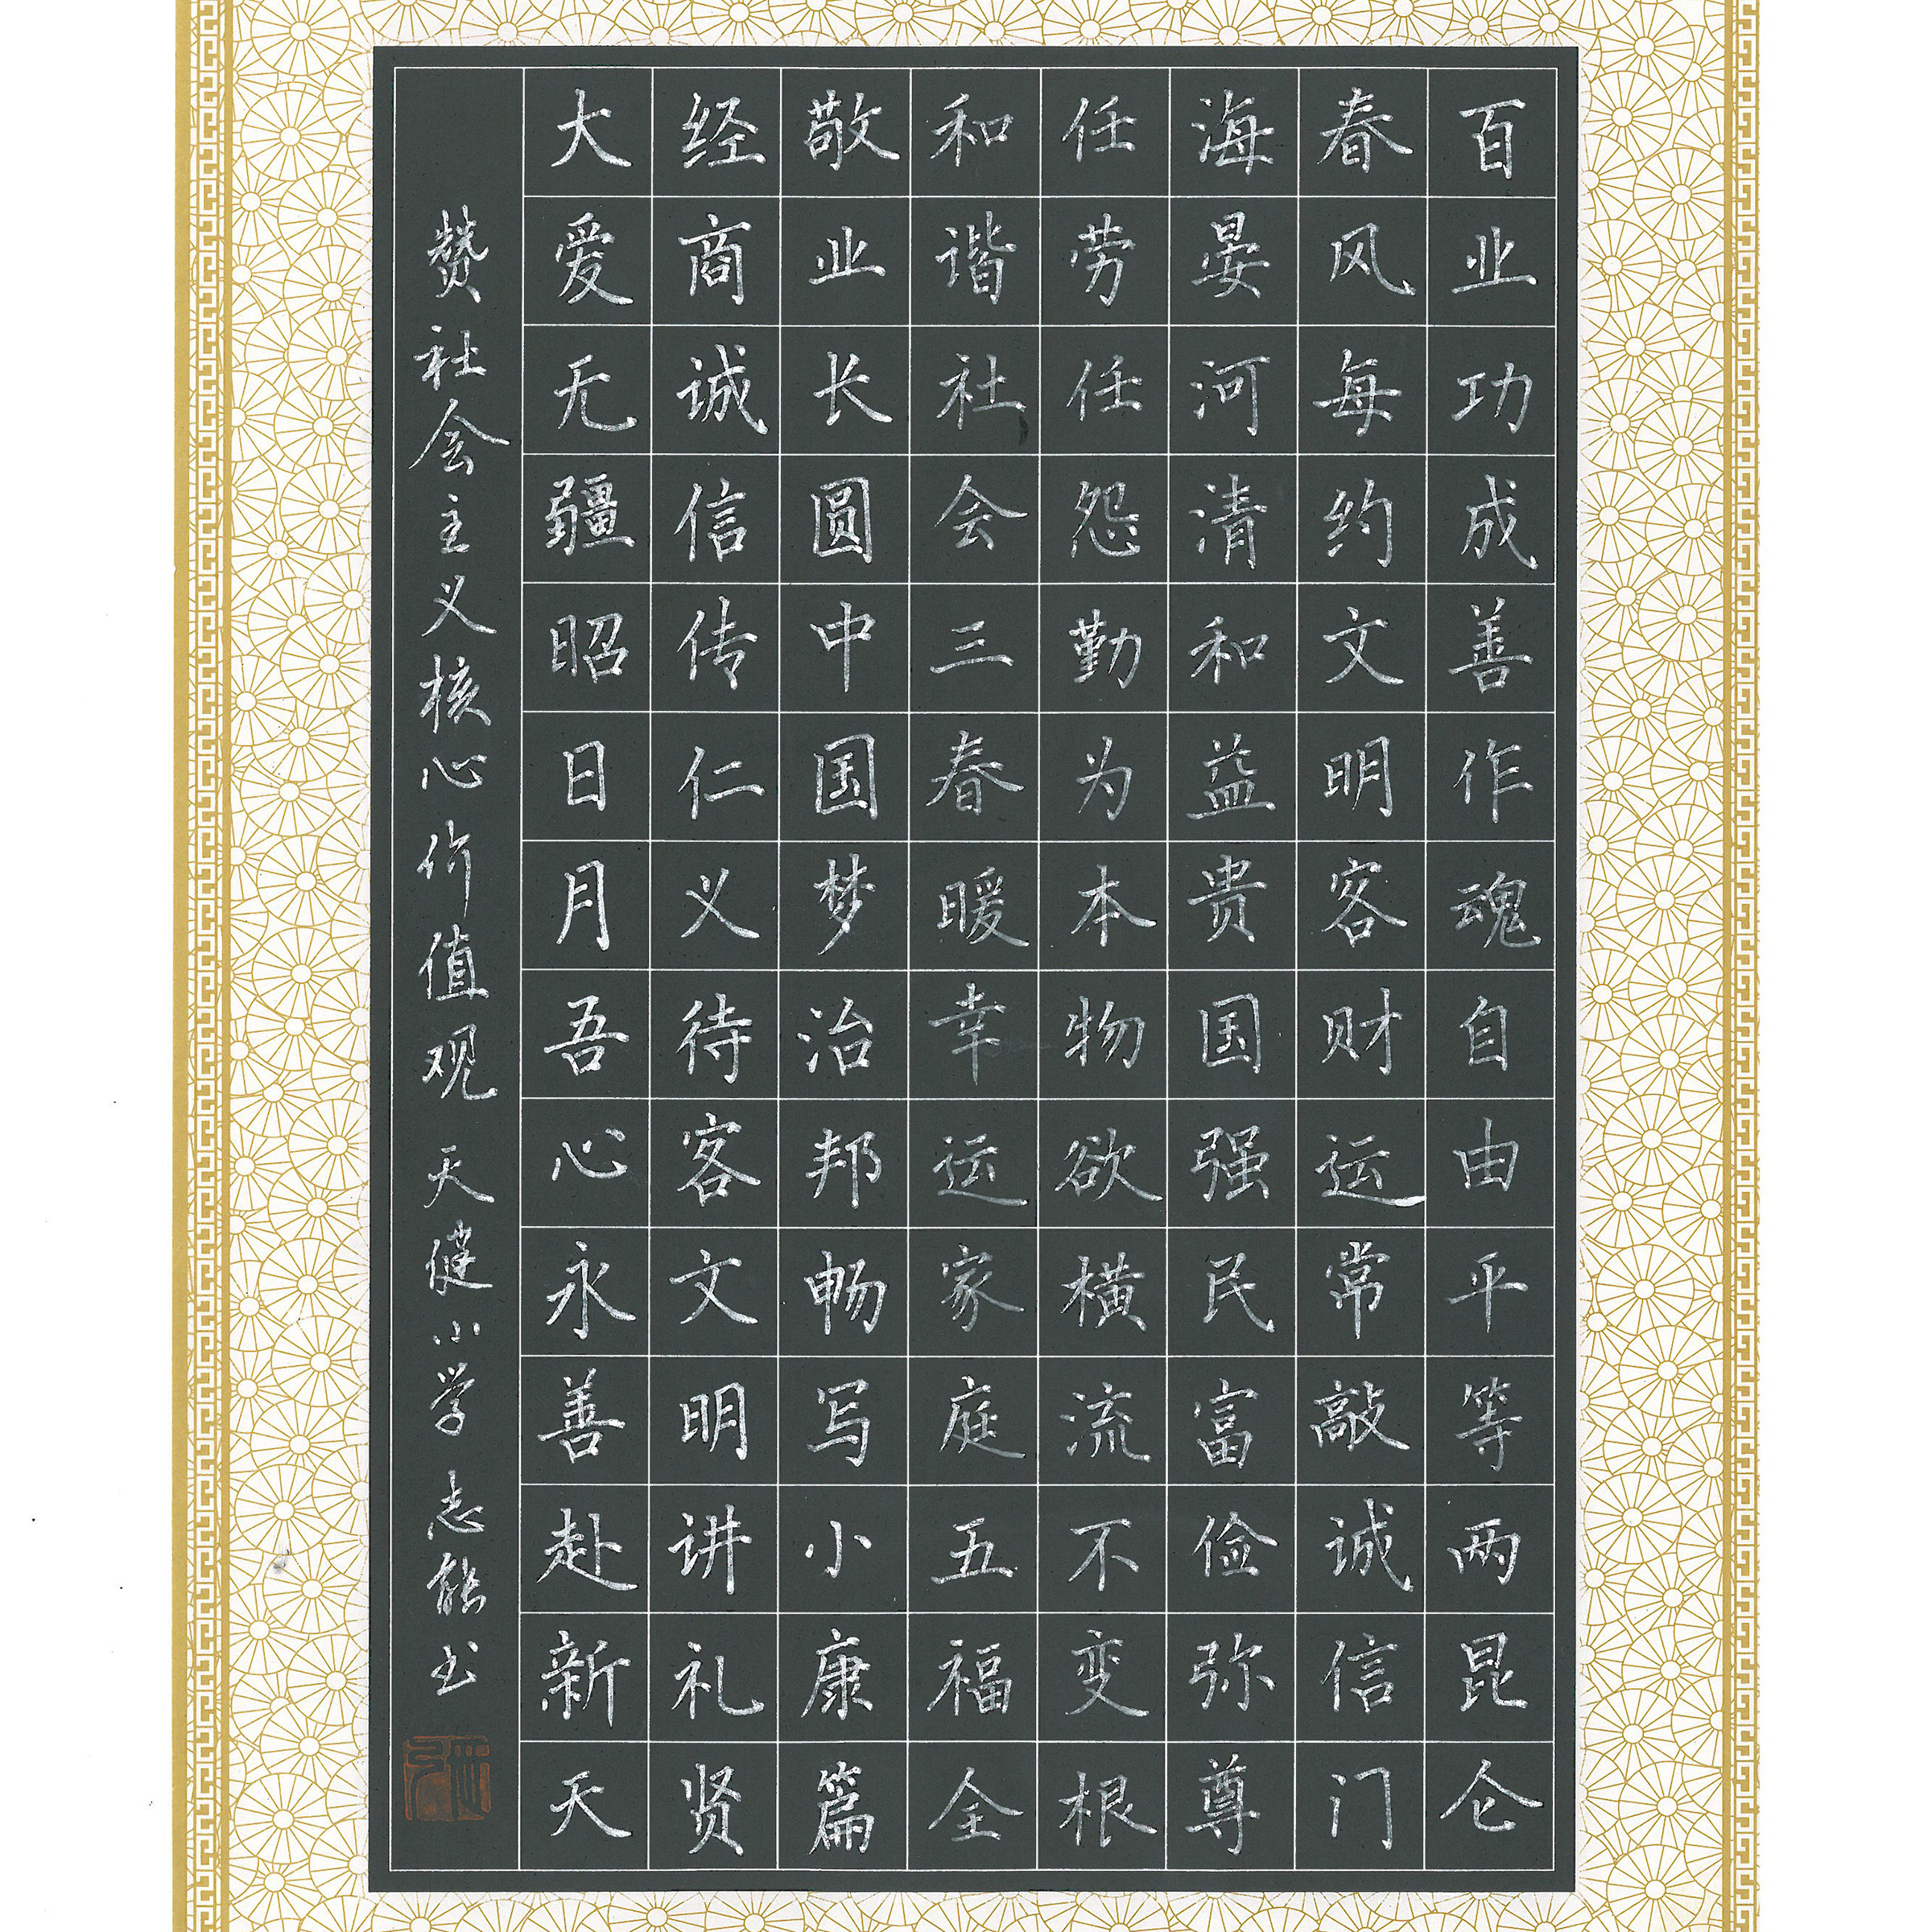 百业功成善作魂自由平等两昆仑
春风每约文明客财运常敲诚信门
海晏河清和益贵国强民富俭弥尊
任劳任怨勤为本物欲横流不变根
和谐社会三春暖幸运家庭五福全
敬业长圆中国梦治邦畅写小康篇
经商诚信传仁义待客文明讲礼贤
大爱无疆昭日月吾心永善赴新天
赞社会主义核心价值观 天健小学 志能书